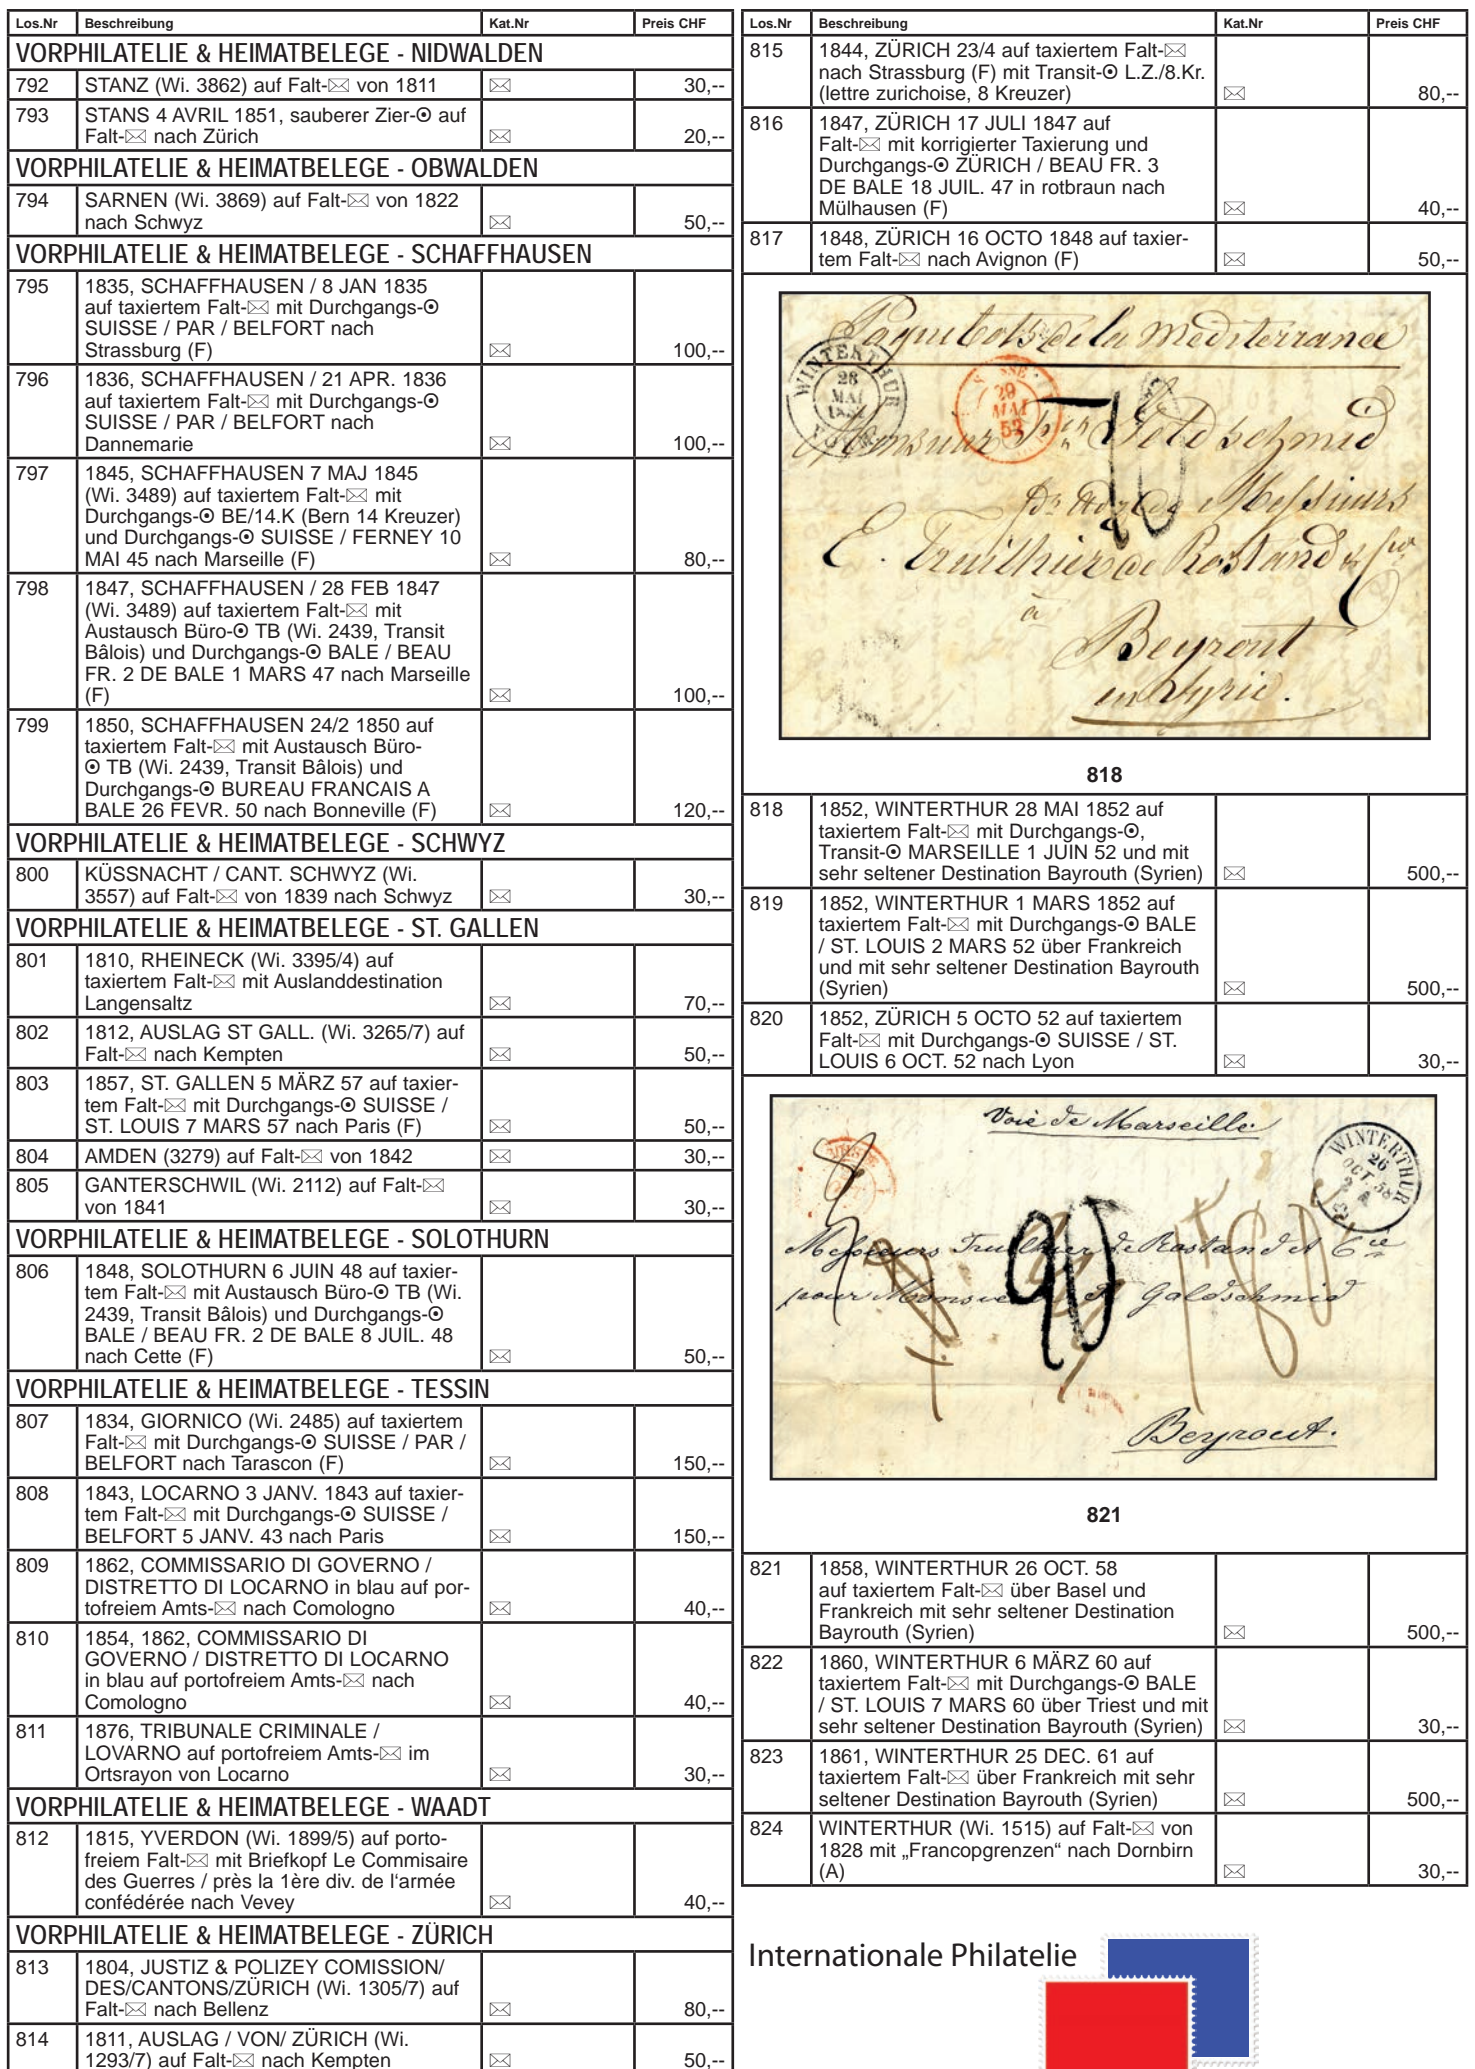 Los.Nr Beschreibung Kat.Nr Preis CHF
VORPHILATELIE & HEIMATBELEGE - NIDWALDEN
792 STANZ (Wi. 3862) auf Falt-✉ von 1811 ✉ 30,--
793 STANS 4 AVRIL 1851, sauberer Zier-⊙ auf
Falt-✉ nach Zürich ✉ 20,--
VORPHILATELIE & HEIMATBELEGE - OBWALDEN
794 SARNEN (Wi. 3869) auf Falt-✉ von 1822
nach Schwyz ✉ 50,--
VORPHILATELIE & HEIMATBELEGE - SCHAFFHAUSEN
795 1835, SCHAFFHAUSEN / 8 JAN 1835
auf taxiertem Falt-✉ mit Durchgangs-⊙
SUISSE / PAR / BELFORT nach
Strassburg (F) ✉ 100,--
796 1836, SCHAFFHAUSEN / 21 APR. 1836
auf taxiertem Falt-✉ mit Durchgangs-⊙
SUISSE / PAR / BELFORT nach
Dannemarie ✉ 100,--
797 1845, SCHAFFHAUSEN 7 MAJ 1845
(Wi. 3489) auf taxiertem Falt-✉ mit
Durchgangs-⊙ BE/14.K (Bern 14 Kreuzer)
und Durchgangs-⊙ SUISSE / FERNEY 10
MAI 45 nach Marseille (F) ✉ 80,--
798 1847, SCHAFFHAUSEN / 28 FEB 1847
(Wi. 3489) auf taxiertem Falt-✉ mit
Austausch Büro-⊙ TB (Wi. 2439, Transit
Bâlois) und Durchgangs-⊙ BALE / BEAU
FR. 2 DE BALE 1 MARS 47 nach Marseille
(F) ✉ 100,--
799 1850, SCHAFFHAUSEN 24/2 1850 auf
taxiertem Falt-✉ mit Austausch Büro-
⊙ TB (Wi. 2439, Transit Bâlois) und
Durchgangs-⊙ BUREAU FRANCAIS A
BALE 26 FEVR. 50 nach Bonneville (F) ✉ 120,--
VORPHILATELIE & HEIMATBELEGE - SCHWYZ
800 KÜSSNACHT / CANT. SCHWYZ (Wi.
3557) auf Falt-✉ von 1839 nach Schwyz ✉ 30,--
VORPHILATELIE & HEIMATBELEGE - ST. GALLEN
801 1810, RHEINECK (Wi. 3395/4) auf
taxiertem Falt-✉ mit Auslanddestination
Langensaltz ✉ 70,--
802 1812, AUSLAG ST GALL. (Wi. 3265/7) auf
Falt-✉ nach Kempten ✉ 50,--
803 1857, ST. GALLEN 5 MÄRZ 57 auf taxier-
tem Falt-✉ mit Durchgangs-⊙ SUISSE /
ST. LOUIS 7 MARS 57 nach Paris (F) ✉ 50,--
804 AMDEN (3279) auf Falt-✉ von 1842 ✉ 30,--
805 GANTERSCHWIL (Wi. 2112) auf Falt-✉
von 1841 ✉ 30,--
VORPHILATELIE & HEIMATBELEGE - SOLOTHURN
806 1848, SOLOTHURN 6 JUIN 48 auf taxier-
tem Falt-✉ mit Austausch Büro-⊙ TB (Wi.
2439, Transit Bâlois) und Durchgangs-⊙
BALE / BEAU FR. 2 DE BALE 8 JUIL. 48
nach Cette (F) ✉ 50,--
VORPHILATELIE & HEIMATBELEGE - TESSIN
807 1834, GIORNICO (Wi. 2485) auf taxiertem
Falt-✉ mit Durchgangs-⊙ SUISSE / PAR /
BELFORT nach Tarascon (F) ✉ 150,--
808 1843, LOCARNO 3 JANV. 1843 auf taxier-
tem Falt-✉ mit Durchgangs-⊙ SUISSE /
BELFORT 5 JANV. 43 nach Paris ✉ 150,--
809 1862, COMMISSARIO DI GOVERNO /
DISTRETTO DI LOCARNO in blau auf por-
tofreiem Amts-✉ nach Comologno ✉ 40,--
810 1854, 1862, COMMISSARIO DI
GOVERNO / DISTRETTO DI LOCARNO
in blau auf portofreiem Amts-✉ nach
Comologno ✉ 40,--
811 1876, TRIBUNALE CRIMINALE /
LOVARNO auf portofreiem Amts-✉ im
Ortsrayon von Locarno ✉ 30,--
VORPHILATELIE & HEIMATBELEGE - WAADT
812 1815, YVERDON (Wi. 1899/5) auf porto-
freiem Falt-✉ mit Briefkopf Le Commisaire
des Guerres / près la 1ère div. de l'armée
confédérée nach Vevey ✉ 40,--
VORPHILATELIE & HEIMATBELEGE - ZÜRICH
813 1804, JUSTIZ & POLIZEY COMISSION/
DES/CANTONS/ZÜRICH (Wi. 1305/7) auf
Falt-✉ nach Bellenz ✉ 80,--
814 1811, AUSLAG / VON/ ZÜRICH (Wi.
1293/7) auf Falt-✉ nach Kempten ✉ 50,--
Los.Nr Beschreibung Kat.Nr Preis CHF
815 1844, ZÜRICH 23/4 auf taxiertem Falt-✉
nach Strassburg (F) mit Transit-⊙ L.Z./8.Kr.
(lettre zurichoise, 8 Kreuzer) ✉ 80,--
816 1847, ZÜRICH 17 JULI 1847 auf
Falt-✉ mit korrigierter Taxierung und
Durchgangs-⊙ ZÜRICH / BEAU FR. 3
DE BALE 18 JUIL. 47 in rotbraun nach
Mülhausen (F) ✉ 40,--
817 1848, ZÜRICH 16 OCTO 1848 auf taxier-
tem Falt-✉ nach Avignon (F) ✉ 50,--
Paquebots de la Mediterranée
WINTERTHUR
28
MAI
1852
29
MAI
52
Monsieur Goldschmid
Messieurs
E. Truilhier de Rostand & Cie
à
Beyrout
en Syrie.
818
818 1852, WINTERTHUR 28 MAI 1852 auf
taxiertem Falt-✉ mit Durchgangs-⊙,
Transit-⊙ MARSEILLE 1 JUIN 52 und mit
sehr seltener Destination Bayrouth (Syrien) ✉ 500,--
819 1852, WINTERTHUR 1 MARS 1852 auf
taxiertem Falt-✉ mit Durchgangs-⊙ BALE
/ ST. LOUIS 2 MARS 52 über Frankreich
und mit sehr seltener Destination Bayrouth
(Syrien) ✉ 500,--
820 1852, ZÜRICH 5 OCTO 52 auf taxiertem
Falt-✉ mit Durchgangs-⊙ SUISSE / ST.
LOUIS 6 OCT. 52 nach Lyon ✉ 30,--
Voie de Marseille
WINTERTHUR
26
OCT. 58
2 A
90
Messieurs Truilhier de Rostand et Cie
pour Monsieur Goldschmid
Beyrout.
821
821 1858, WINTERTHUR 26 OCT. 58
auf taxiertem Falt-✉ über Basel und
Frankreich mit sehr seltener Destination
Bayrouth (Syrien) ✉ 500,--
822 1860, WINTERTHUR 6 MÄRZ 60 auf
taxiertem Falt-✉ mit Durchgangs-⊙ BALE
/ ST. LOUIS 7 MARS 60 über Triest und mit
sehr seltener Destination Bayrouth (Syrien) ✉ 30,--
823 1861, WINTERTHUR 25 DEC. 61 auf
taxiertem Falt-✉ über Frankreich mit sehr
seltener Destination Bayrouth (Syrien) ✉ 500,--
824 WINTERTHUR (Wi. 1515) auf Falt-✉ von
1828 mit „Francopgrenzen“ nach Dornbirn
(A) ✉ 30,--
Internationale Philatelie